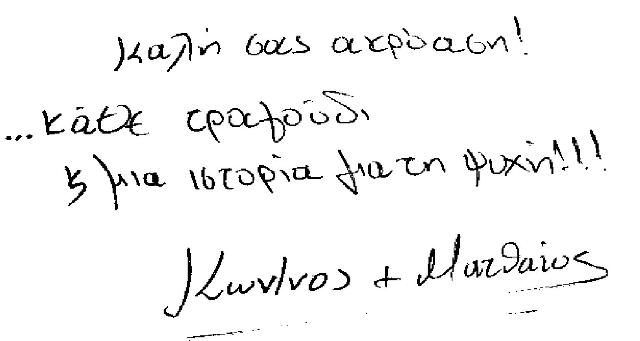 Καλή σας ακρόαση!
...κάθε τραγούδι
& μια ιστορία για τη ψυχή!!!
Κων/νος + Ματθαίος